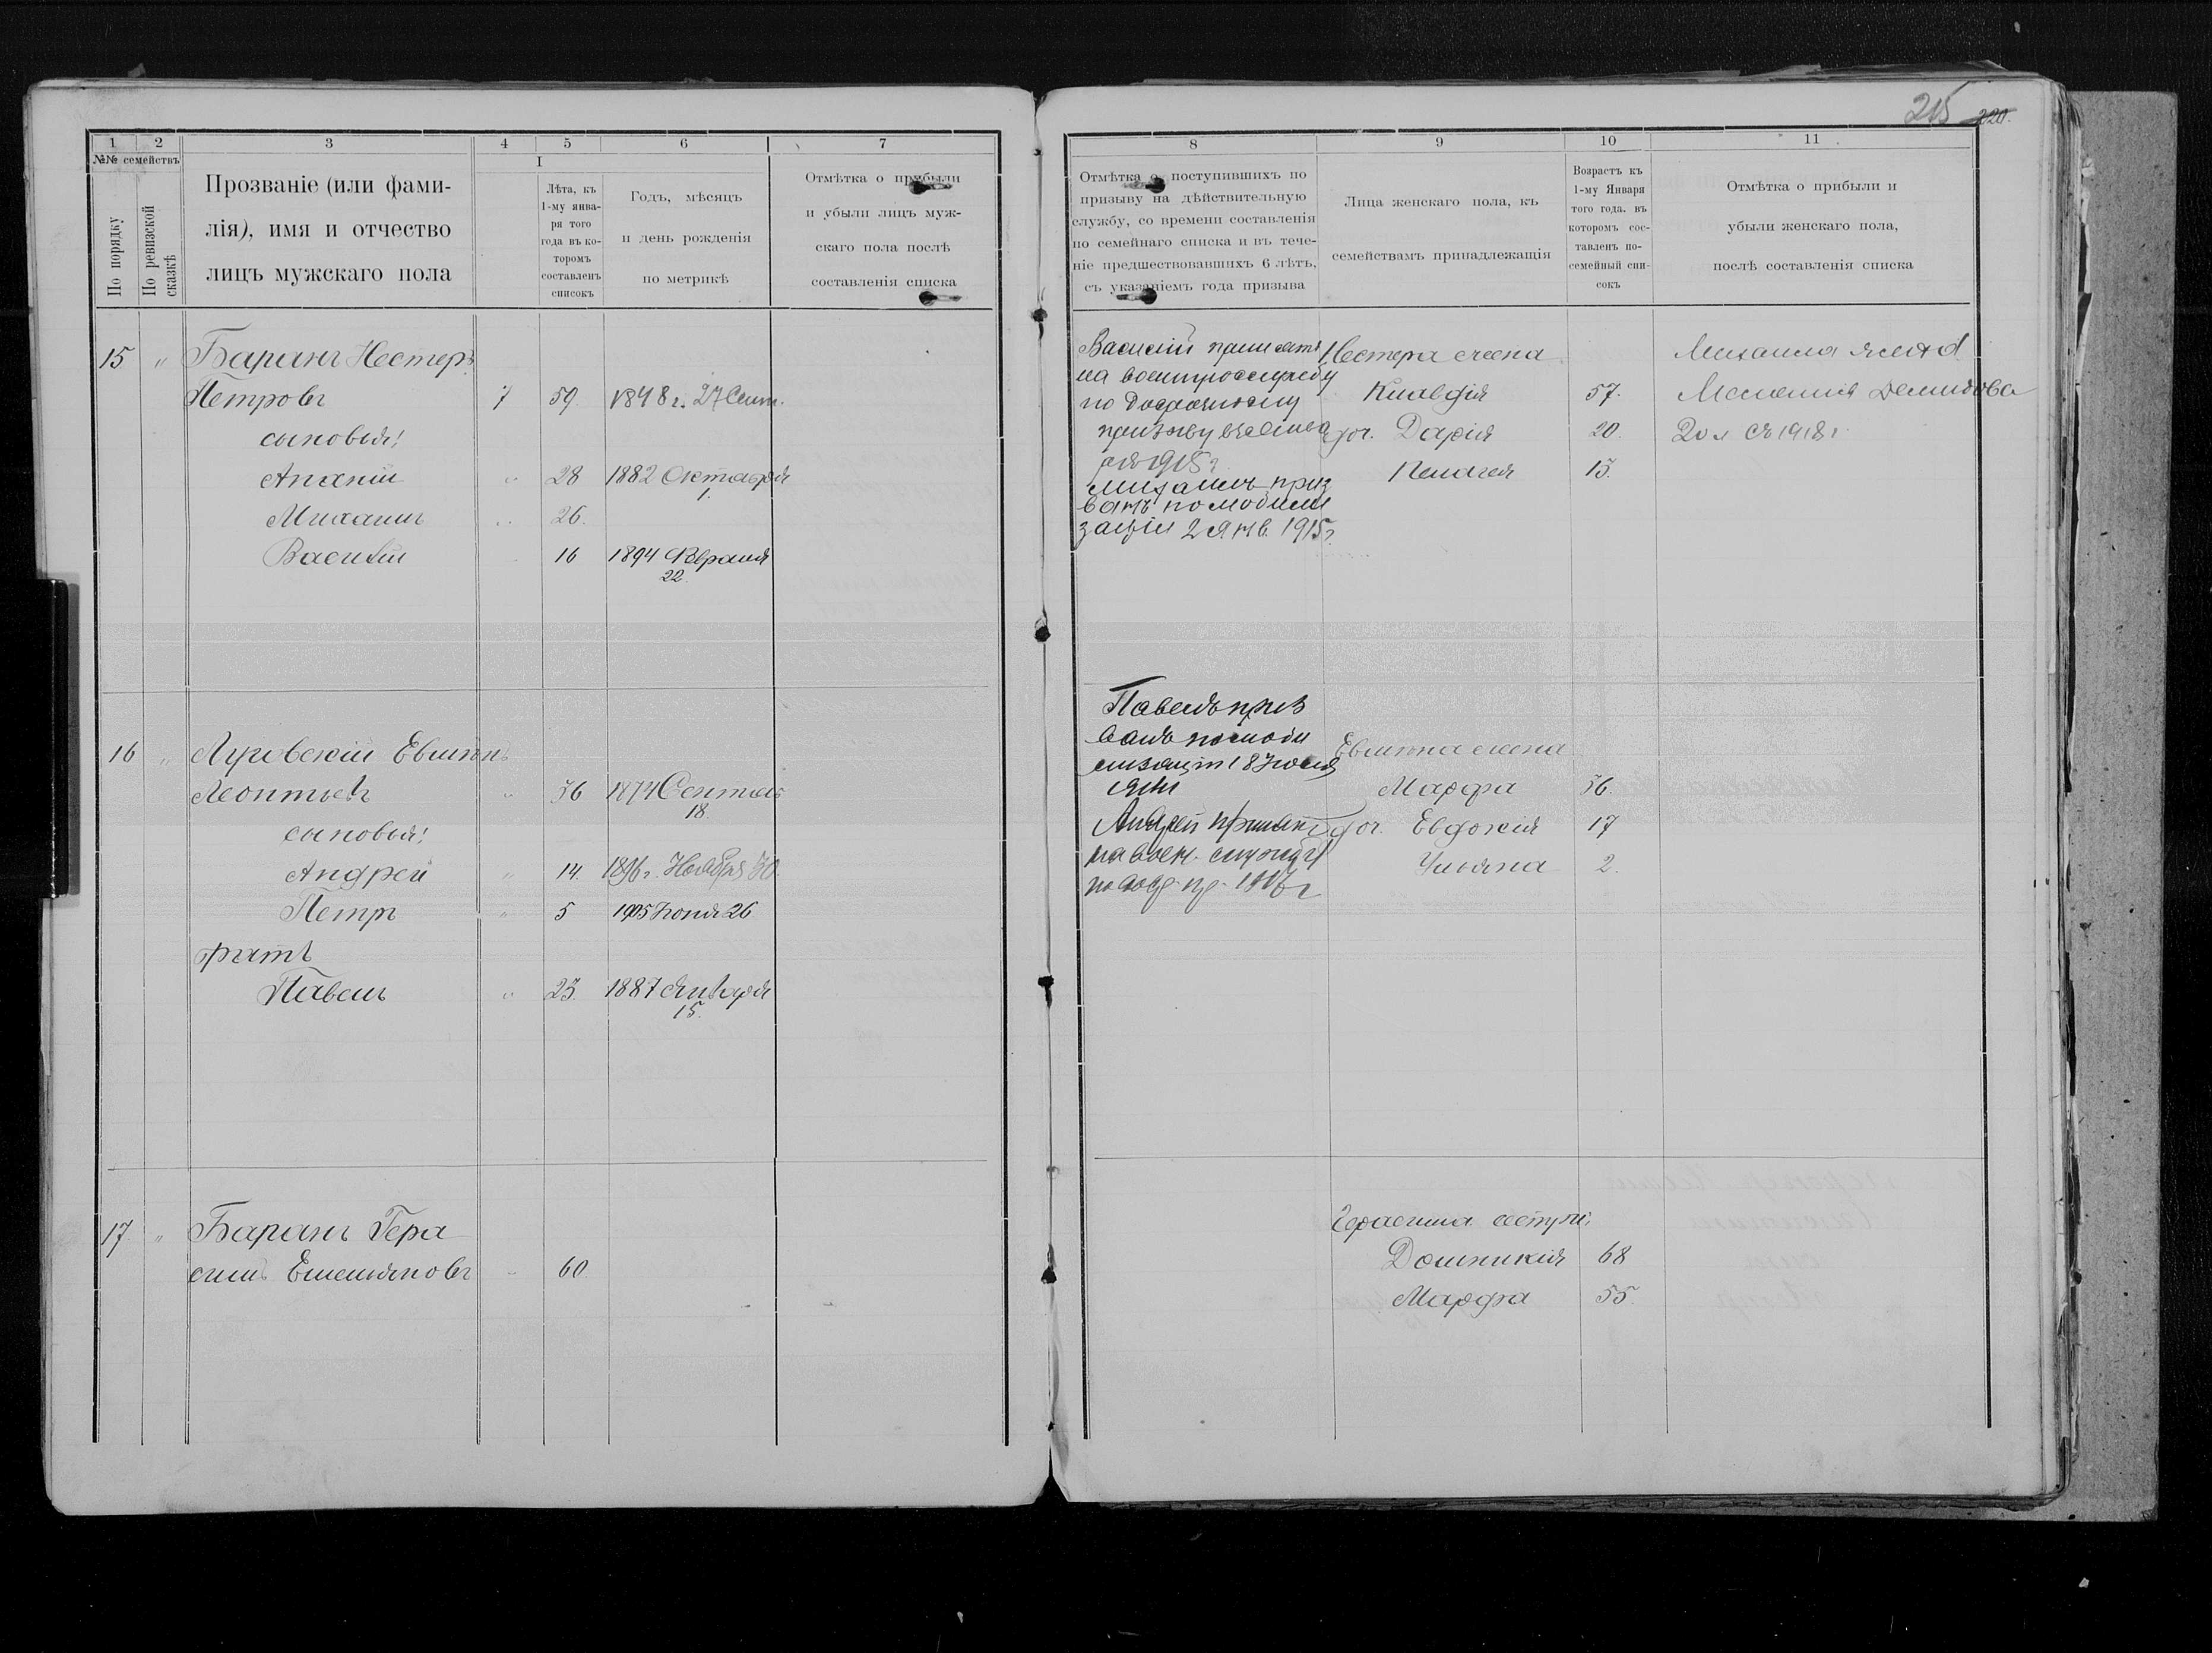 215 220.
1 2 3 4 5 6 7
№№ семействъ
По порядку
По ревизской сказкѣ
Прозваніе (или фами-
лія), имя и отчество
лицъ мужскаго пола
I
Лѣта, къ
1-му янва-
ря того
года въ ко-
торомъ
составленъ
списокъ
Годъ, мѣсяцъ
и день рожденія
по метрикѣ
Отмѣтка о прибыли
и убыли лицъ муж-
скаго пола послѣ
составленія списка
15 " Баранъ Нестеръ
Петровъ 7 59. 1848 г. 27 Сент.
сыновья:
Ананій " 28 1882 Октября
1.
Михаилъ " 26.
Василій 16 1894 Февраля
22.
16 " Луговскій Евтихій
Леонтьевъ " 36 1874 Сентяб
18
сыновья:
Андрей " 14 1896 г. Ноября 30.
Петръ " 5 1905 Іюня 26
братъ
Павелъ " 23. 1887 Января
15.
17 " Баранъ Гера
симъ Емельяновъ " 60.
8 9 10 11
Отмѣтка о поступившихъ по
призыву на дѣйствительную
службу, со времени составленія
по семейнаго списка и въ тече-
ніе предшествовавшихъ 6 лѣтъ,
съ указаніемъ года призыва
Лица женскаго пола, къ
семействамъ принадлежащія
Возрастъ къ
1-му Января
того года. въ
которомъ сос-
тавленъ по-
семейный спи-
сокъ
Отмѣтка о прибыли и
убыли женскаго пола,
послѣ составленія списка
Василій принятъ
на воен
по Досрочному
призыву
1915 г.
Михаилъ приз
ванъ по мобили
заціи 2 Янв. 1915 г.
Нестера жена
Клавдія 57.
доч. Дарія 20.
Пелагея 15.
Михаила жена
Меланія Демидова
20 л съ 1918 г.
Павелъ приз
ванъ по моби
лизаціи 18 Іюля
Андрей принят
на воен. службу
по доср. пр.
жена
Марфа 36.
доч. Евдокія 17
Ульяна 2.
Герасима сестры:
Домникія 68
Марфа 55.